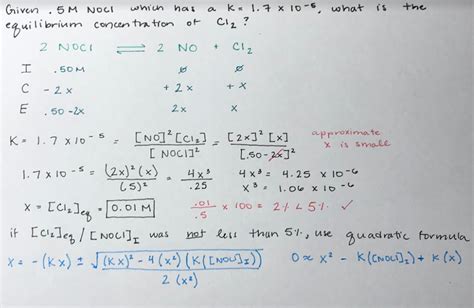 Given .5M NOCl which has a K = 1.7 x 10⁻⁵, what is the
equilibrium concentration of Cl₂?
2 NOCl ⇌ 2 NO + Cl₂
I .50M ∅ ∅
C - 2x + 2x + x
E .50-2x 2x x
K = 1.7 x 10⁻⁵ = [NO]²[Cl₂] / [NOCl]² = [2x]²[x] / [.50-2x]² approximate x is small
1.7 x 10⁻⁵ = (2x)²(x) / (.5)² = 4x³ / .25 4x³ = 4.25 x 10⁻⁶
x³ = 1.06 x 10⁻⁶
x = [Cl₂]eq = 0.01M .01 / .5 x 100 = 2% < 5% ✓
if [Cl₂]eq / [NOCl]I was not less than 5%, use quadratic formula
x = -(Kx) ± √((Kx)² - 4(x²)(K([NOCl]I)) / 2(x²) 0 ∝ x² - K([NOCl]I) + K(x)